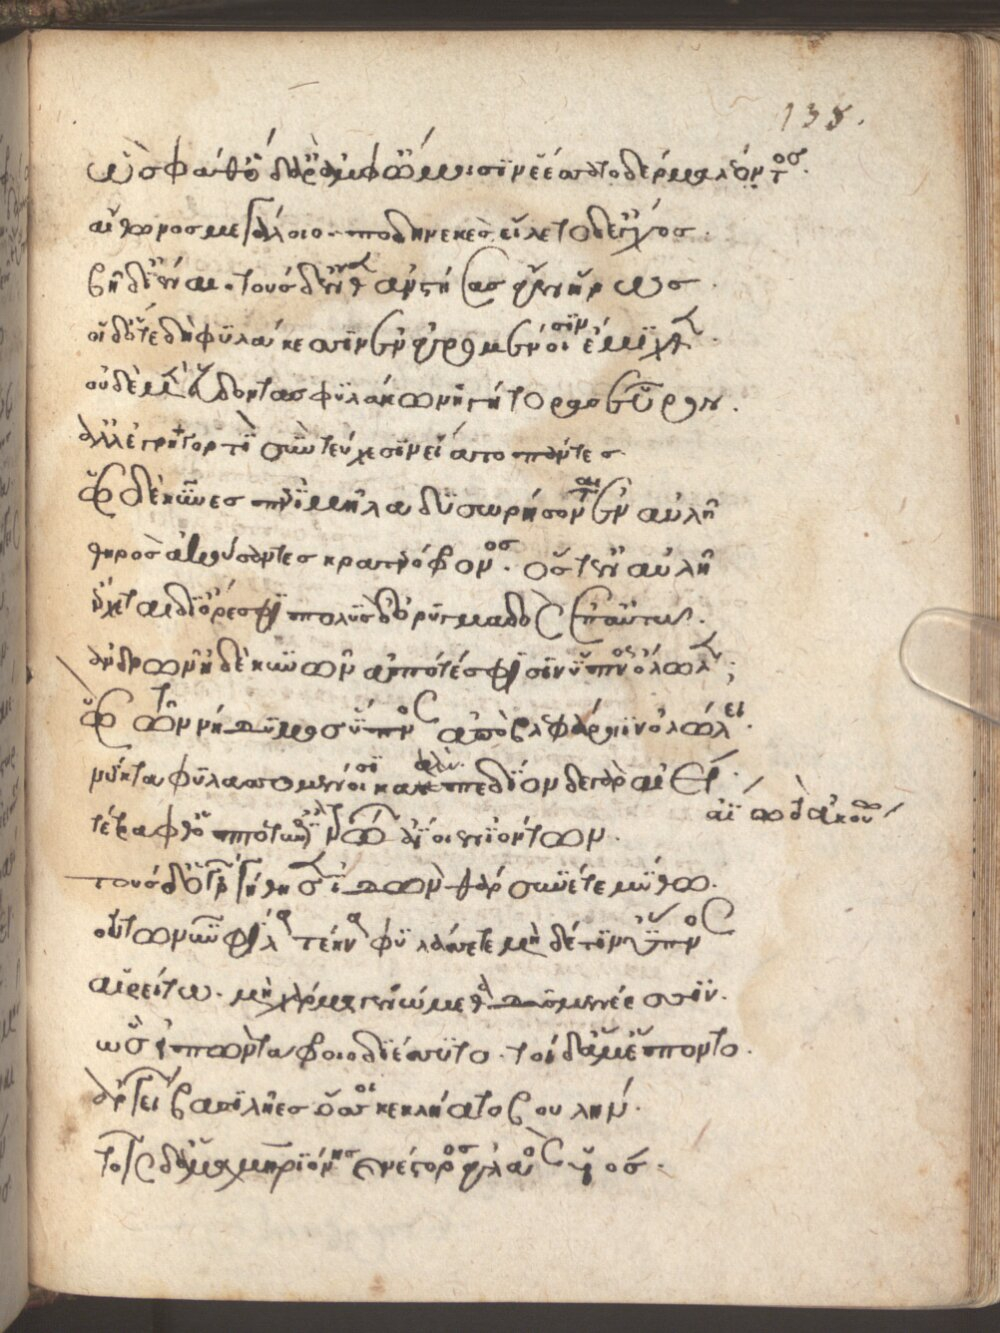 138.
ὣς φάθ' ὁ δ' ἄρ' ἀμφ' ὤμοισιν ἑέσσατο δέρμα λέοντος.
αἴθωνος μεγάλοιο. ποδηνεκὲς. εἵλετο δ' ἔγχος.
βῆ δ' ἰέναι. τοὺς δ' ἔνθεν ἀνστήσας ἄγεν ἥρως.
οἱ δ' ὅτε δὴ φυλάκεσσιν ἐν ἀγρομένοισιν ἔμιχθεν.
οὐδὲ μὲν εὕδοντας φυλάκων ἡγήτορας εὗρον.
ἀλλ' ἐγρηγορτὶ σὺν τεύχεσιν εἵατο πάντες
ὡς δὲ κύνες περὶ μῆλα δυσωρήσονται ἐν αὐλῆ
θηρὸς ἀκούσαντες κρατερόφρονος. ὅς τ' ἐν αὐλῆ
ἔρχεται δι' ὄρεσφι πολὺς δ' ὀρυμαγδὸς ἐπ' αὐτῶ.
ἀνδρῶν ἠδὲ κυνῶν ἀπό τέ σφισιν ὕπνος ὄλωλεν;
ὣς τῶν νήδυμος ὕπνος ἀπὸ βλεφάροιιν ὀλώλει.
νύκτα φυλασσομένοισι κακὴν. πεδίον δὲ γὰρ αἰεί.
τετράφαθ' ὁππότ' ἐπὶ τρώων ἀΐοιεν ἰόντων.
τοὺς δ' ὁ γέρων γήθησεν ἰδὼν θάρσυνέ τε μύθω.
οὕτω νῦν φίλα τέκνα φυλάσσετε μηδέ τιν' ὕπνος
αἱρείτω. μὴ χάρμα γενώμεθα δυσμενέεσσιν.
ὣς εἰπὼν τάφροιο διέσσυτο. τοὶ δ' ἅμ' ἕποντο.
ἀργείων βασιλῆες ὅσοι κεκλήατο βουλήν.
τοῖς δ' ἅμα μηριόνης καὶ νέστορος ἀγλαὸς υἱός.